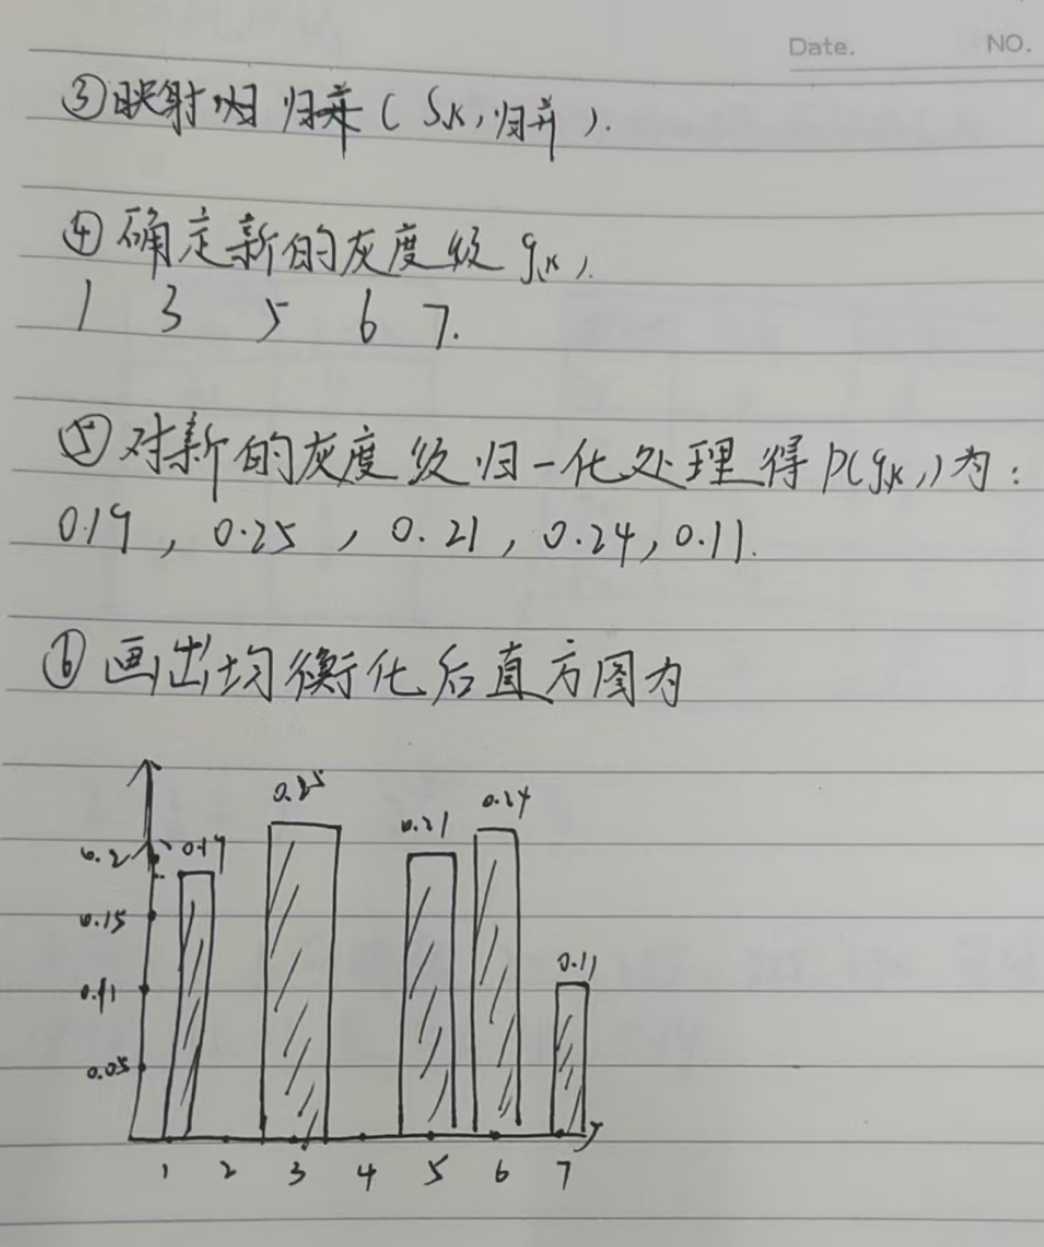 Date. NO.
③映射归 归并(Sk,归并).
④确定新的灰度级 g(k).
1 3 5 6 7.
⑤对新的灰度级归一化处理得P(gk)为:
0.19, 0.25, 0.21, 0.24, 0.11.
⑥画出均衡化后直方图为
0.25
0.24
0.21
0.2 0.19
0.15
0.11
0.11
0.05
1 2 3 4 5 6 7